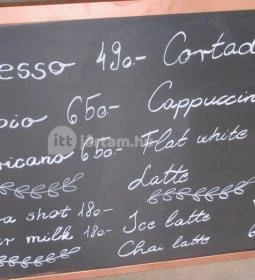 esso 490- Cortad
pio 650- Cappuccin
ricano 650- Flat white
Latte
ra shot 180- Ice latte
r milk 180- Chai latte
itt jartam.hu